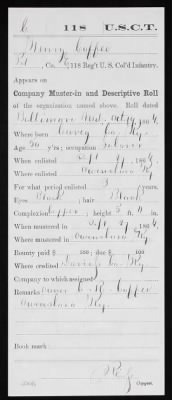 C 118 U.S.C.T.
Henry Cuffee
Pvt., Co. , 118 Reg't U. S. Col'd Infantry.
Appears on
Company Muster-in and Descriptive Roll
of the organization named above. Roll dated
Baltimore Md. Oct 19, 1864.
Where born Daviess Co. Ky.
Age 30 y'rs; occupation Laborer
When enlisted Sept 27, 1864.
Where enlisted Owensboro Ky.
For what period enlisted 3 years.
Eyes Black; hair Black
Complexion Copper; height 5 ft. in.
When mustered in Sept 27, 1864.
Where mustered in Owensboro Ky.
Bounty paid $ 100; due $ 100
Where credited Daviess Co. Ky.
Company to which assigned
Remarks: Owner Cuffee
Owensboro Ky.
Book mark:
Copyist.